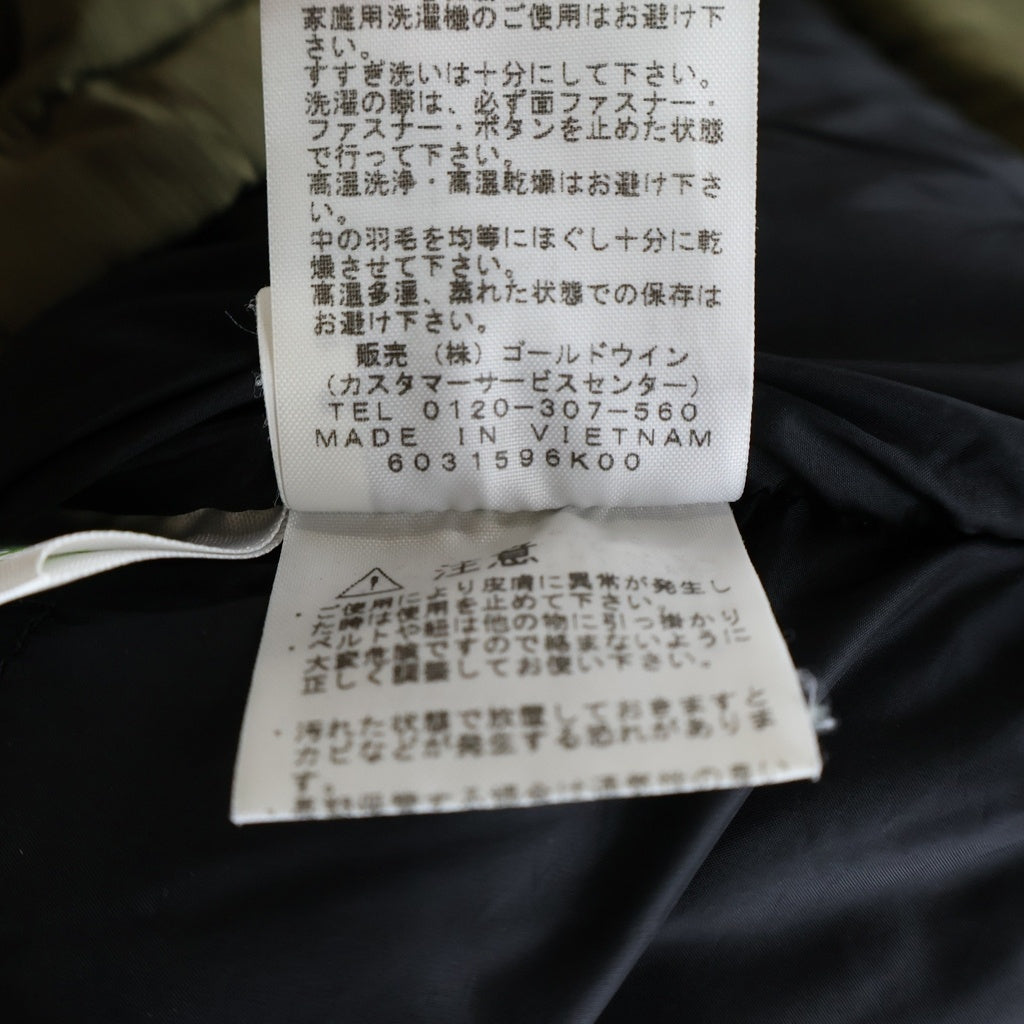 家庭用洗濯機のご使用はお避け下
さい。
すすぎ洗いは十分にして下さい。
洗濯の際は、必ず面ファスナー・
ファスナー・ボタンを止めた状態
で行って下さい。
高温洗浄・高温乾燥はお避け下さ
い。
中の羽毛を均等にほぐし十分に乾
燥させて下さい。
高温多湿、蒸れた状態での保存は
お避け下さい。
販売 (株) ゴールドウイン
(カスタマーサービスセンター)
TEL 0120-307-560
MADE IN VIETNAM
6031596K00
注意
ご使用により皮膚に異常が発生し
た時は使用を止めて下さい。
ベルトや紐は他の物に引っ掛かり
大変危険ですので絡まないように
正しく調整してお使い下さい。
・汚れた状態で放置しておきますと
カビなどが発生する恐れがありま
す。